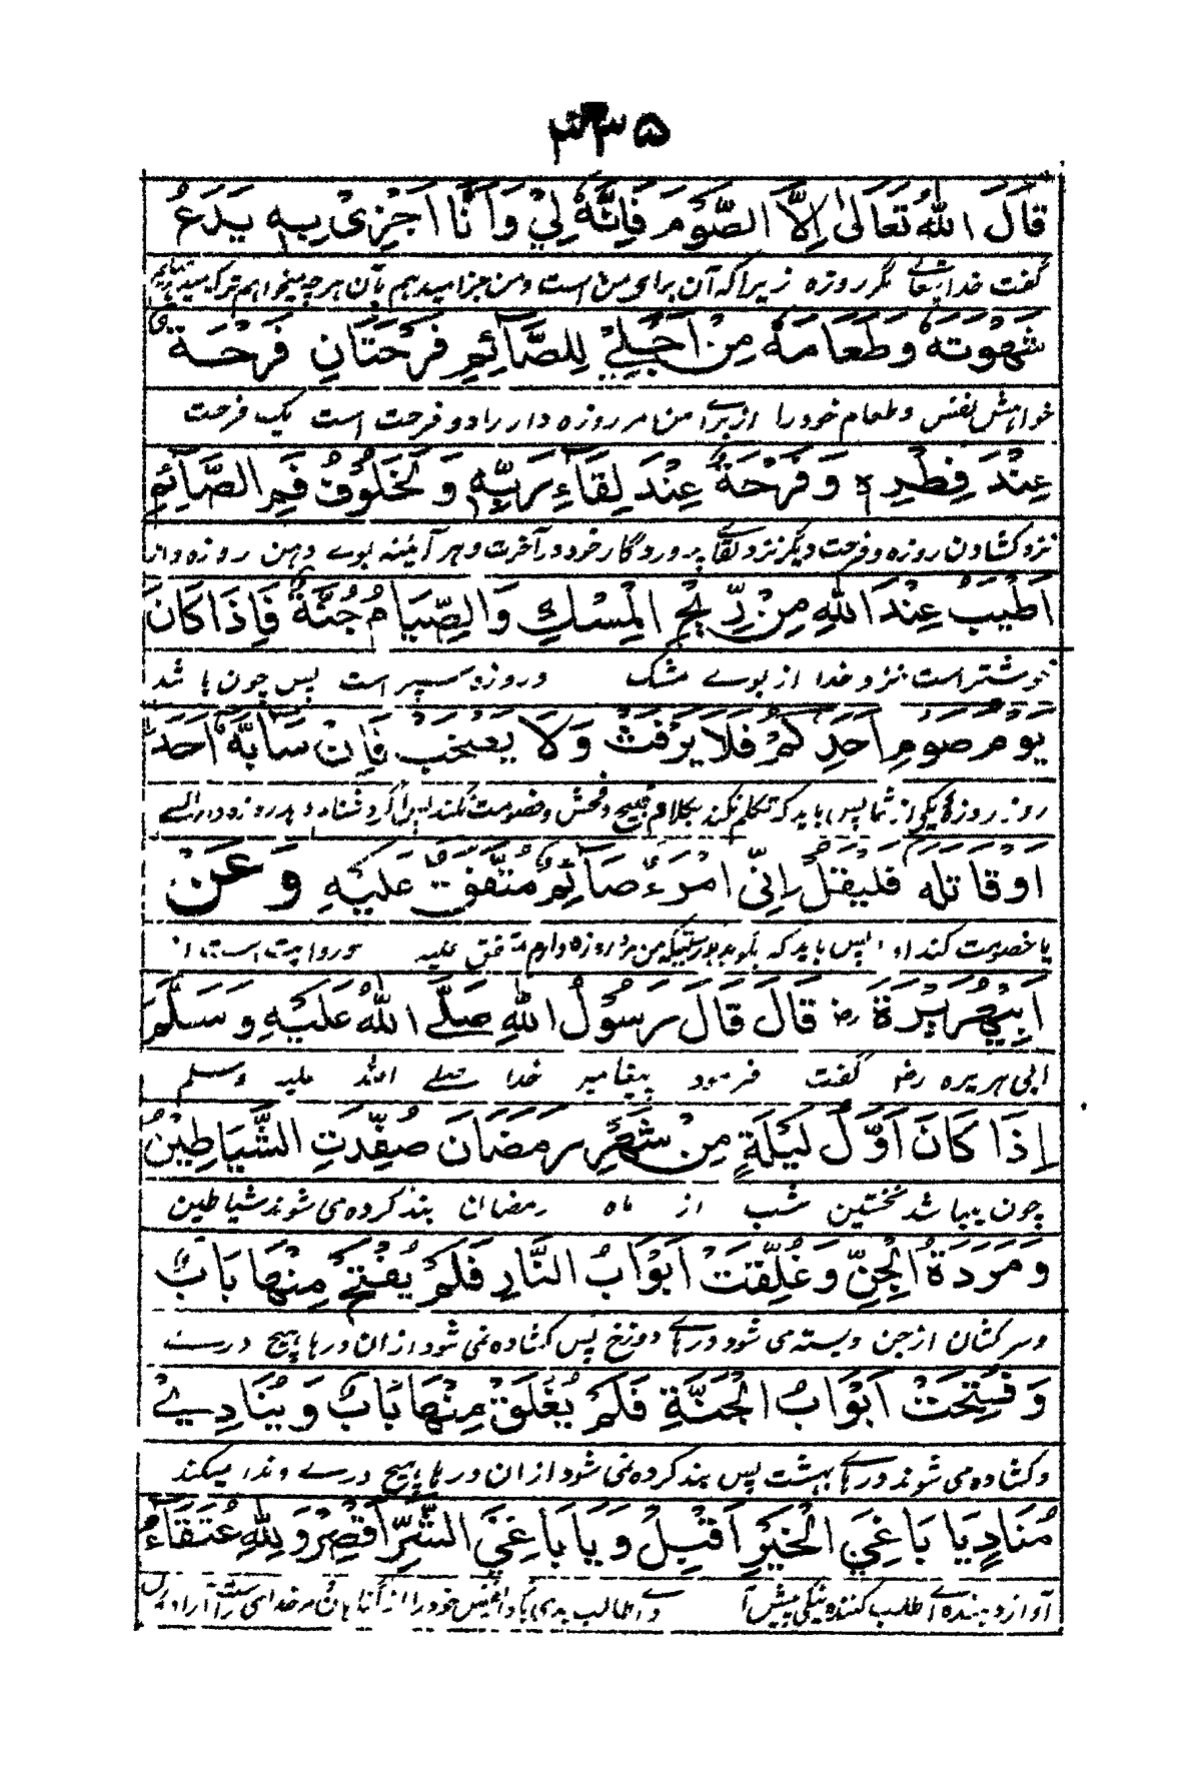 ۳۳۵
قَالَ اللهُ تَعَالٰى اِلَّا الصَّوْمَ فَاِنَّهٗ لِيْ وَاَنَا اَجْزِىْ بِهٖ يَدَعُ
گفت خدایتعالے مگر روزه زیراکه آن برای من است و من جزا میدهم بآن هرچه میخواهم ترک میدهد
شَهْوَتَهٗ وَطَعَامَهٗ مِنْ اَجْلِيْ لِلصَّآئِمِ فَرْحَتَانِ فَرْحَةٌ
خواهش نفس و طعام خود را از برائے من مر روزه دار را دو فرحت است یک فرحت
عِنْدَ فِطْرِهٖ وَفَرْحَةٌ عِنْدَ لِقَآءِ رَبِّهٖ وَلَخَلُوْفُ فَمِ الصَّآئِمِ
نزد کشادن روزه و فرحت دیگر نزد لقائے پروردگار خود در آخرت و هر آئینه بوے دهن روزه دار
اَطْيَبُ عِنْدَ اللهِ مِنْ رِّيْحِ الْمِسْكِ وَالصِّيَامُ جُنَّةٌ فَاِذَا كَانَ
خوشتر است نزد خدا از بوے مشک و روزه سپر است پس چون باشد
يَوْمُ صَوْمِ اَحَدِكُمْ فَلَا يَرْفَثْ وَلَا يَصْخَبْ فَاِنْ سَابَّهٗ اَحَدٌ
روز روزۀ یکی از شما پس باید که تکلم نکند بکلام قبیح و فحش و خصومت نکند پس اگر دشنام دهد روزه دار را کسے
اَوْ قَاتَلَهٗ فَلْيَقُلْ اِنِّىْ امْرَءٌ صَآئِمٌ مُتَّفَقٌ عَلَيْهِ وَعَنْ
یا خصومت کند او پس باید که بگوید بدرستیکه من مرد روزه دارم متفق علیه و روایت است از
اَبِيْ هُرَيْرَةَ رض قَالَ قَالَ رَسُوْلُ اللهِ صَلَّے اللهُ عَلَيْهِ وَسَلَّمَ
ابی هریره رض گفت فرمود پیغامبر خدا صلے الله علیه وسلم
اِذَا كَانَ اَوَّلُ لَيْلَةٍ مِنْ شَهْرِ رَمَضَانَ صُفِّدَتِ الشَّيَاطِيْنُ
چون میباشد نخستین شب از ماه رمضان بند کرده می شوند شیاطین
وَمَرَدَةُ الْجِنِّ وَغُلِّقَتْ اَبْوَابُ النَّارِ فَلَمْ يُفْتَحْ مِنْهَا بَابٌ
و سرکشان از جن و بسته می شود درهاے دوزخ پس کشاده نمی شود ازان درها هیچ درے
وَفُتِحَتْ اَبْوَابُ الْجَنَّةِ فَلَمْ يُغْلَقْ مِنْهَا بَابٌ وَيُنَادِيْ
و کشاده می شوند درهاے بهشت پس بند کرده نمی شود ازان درها هیچ درے و ندا میکند
مُنَادٍ يَا بَاغِيَ الْخَيْرِ اَقْبِلْ وَيَا بَاغِيَ الشَّرِّ اَقْصِرْ وَلِلّٰهِ عُتَقَآءُ
آواز دهنده اے طلب کننده نیکی پیش آ و اے طالب بدی خود را از گناهان مر خدای راست آزاد